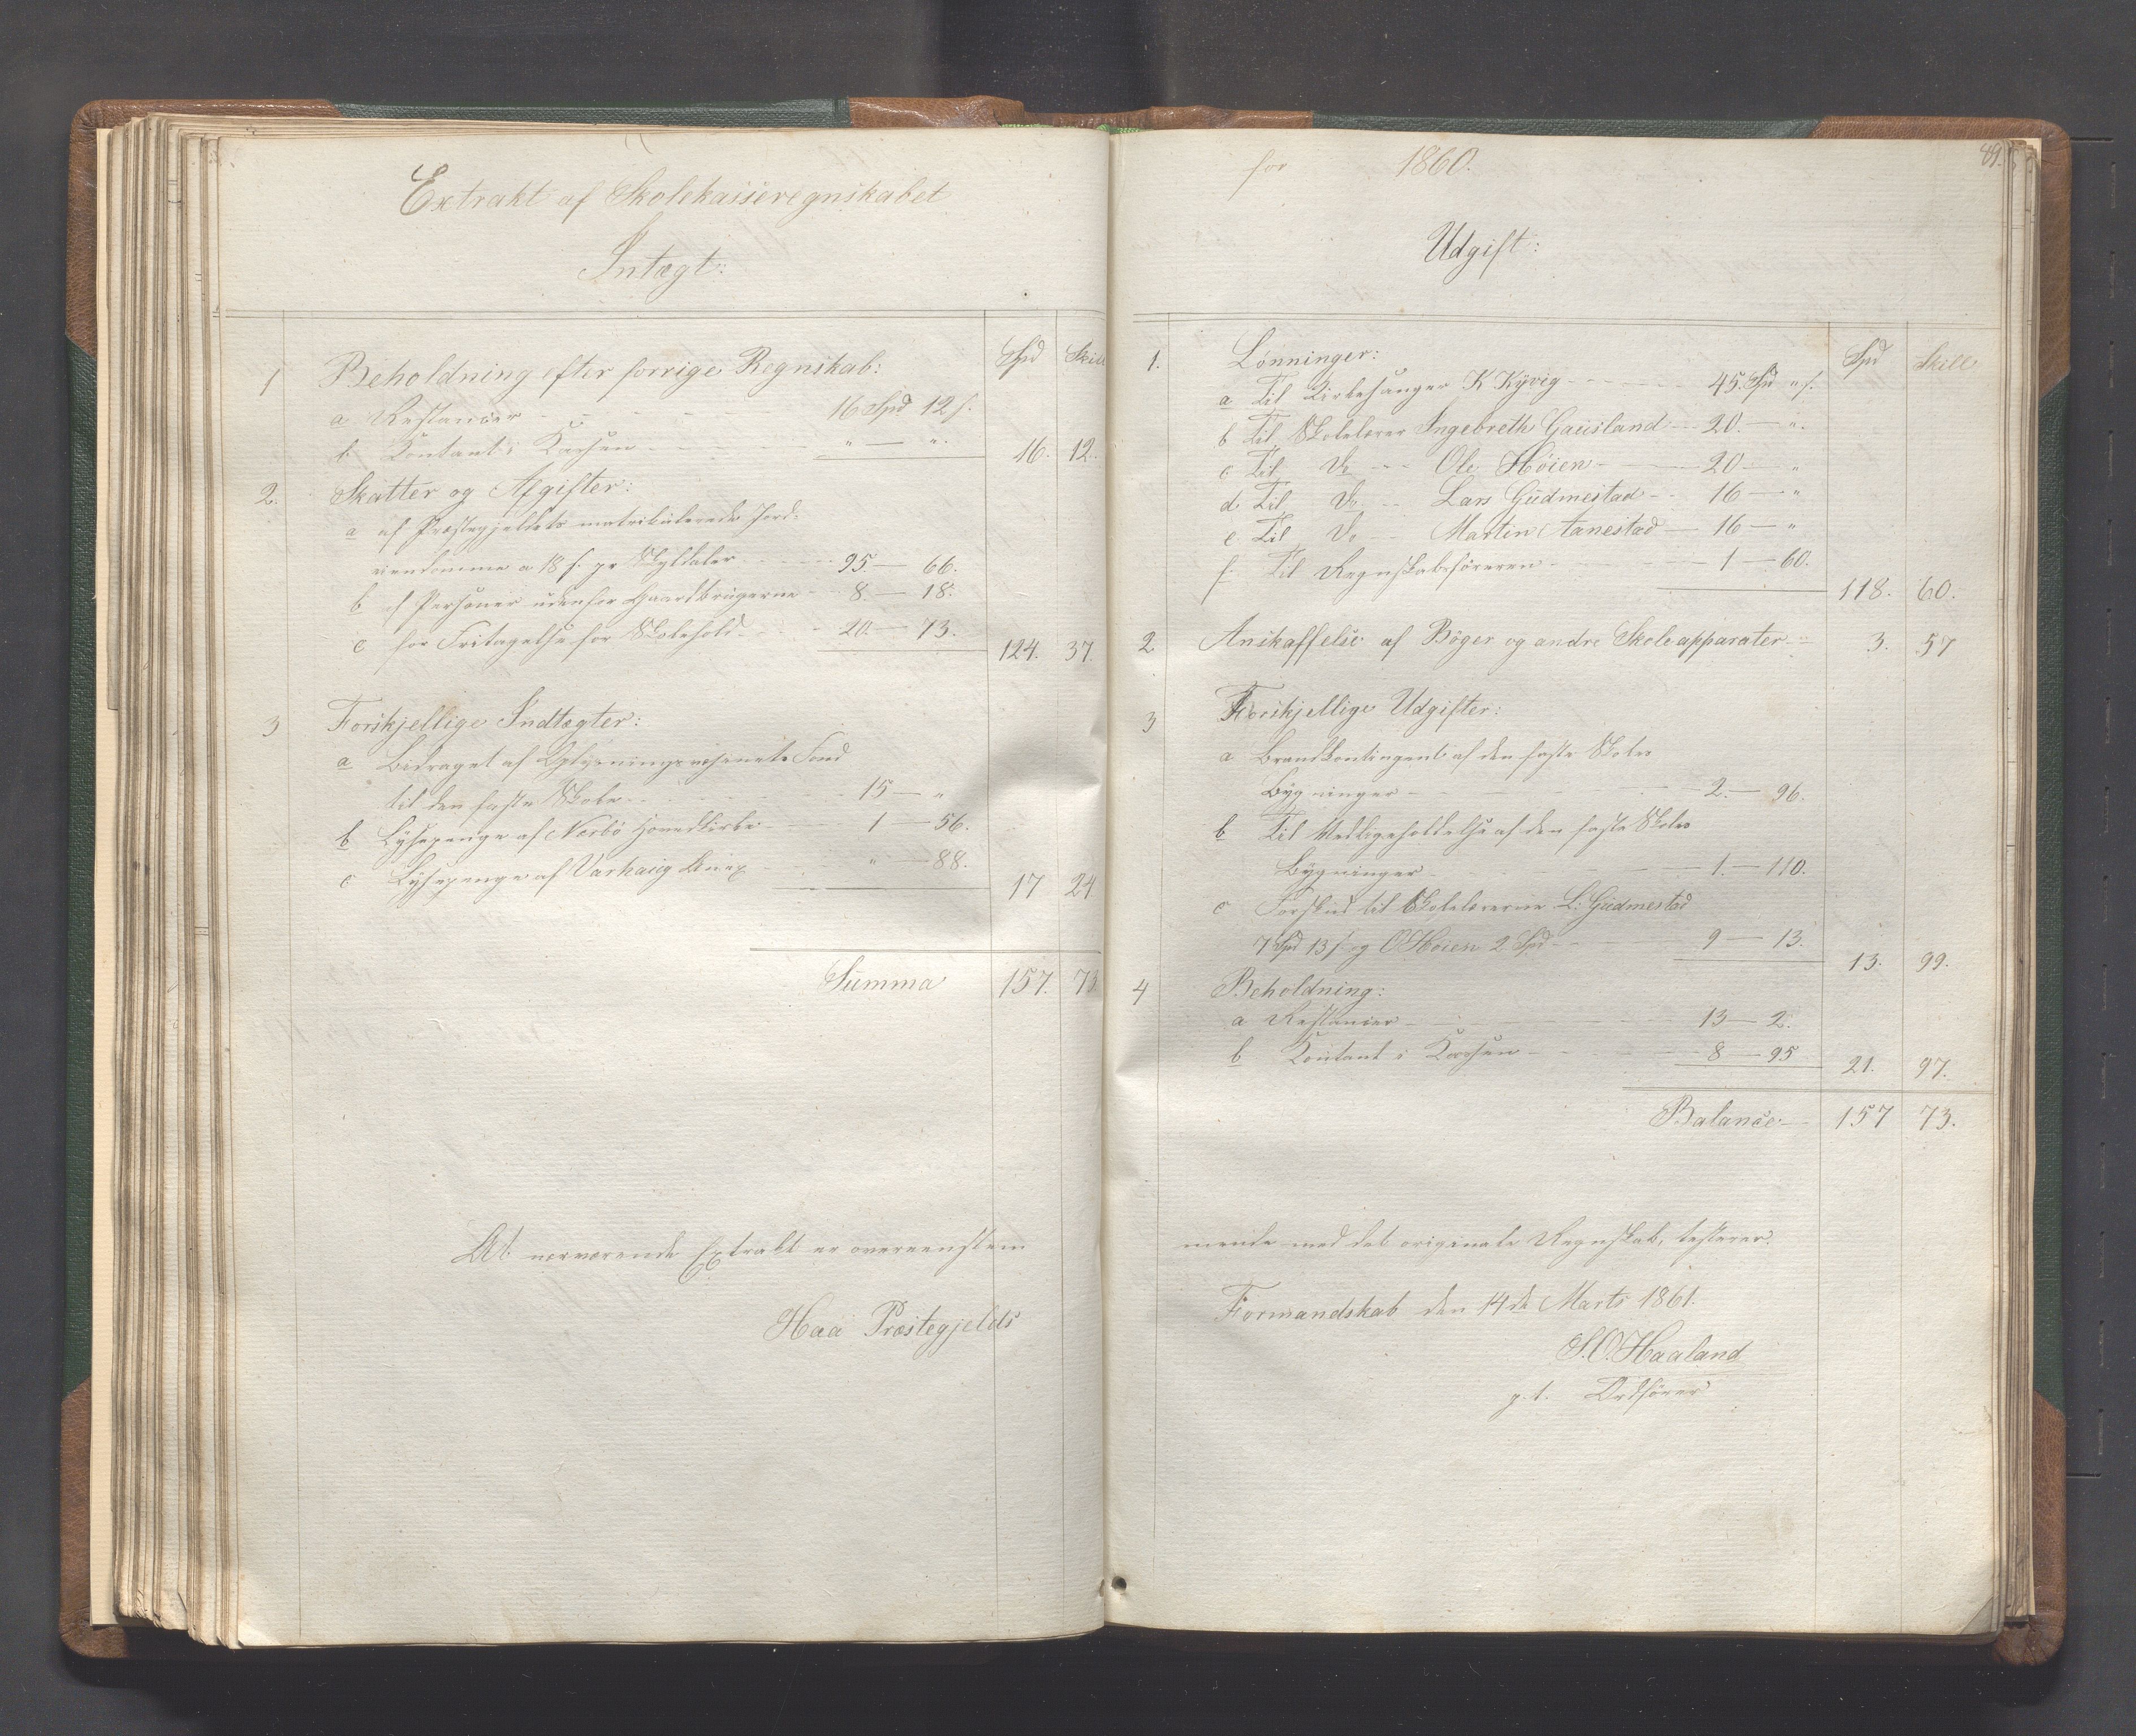 Extrakt af Skolekasseregnskabet
Intægt:
Spd Skill
1 Beholdning efter forrige Regnskab:
a Restancer - - - - 16 Spd 12 s.
b Contant i Kassen - - - - " — ". 16. 12.
2. Skatter og Afgifter:
a af Præstegjeldets matrikulerede Jord-
eiendomme a 18 s. pr Skyldaler - - - 95 — 66.
b af Personer udenfor Gaardbrugerne - 8. — 18.
c for Fritagelse for Skolehold - - - 20. — 73. 124. 37.
3 Forskjellige Indtægter:
a Bidraget af Oplysningsvæsenets Fond
til den faste Skole - - - - 15 — "
b Lysepenge af Nærbø Hovedkirke - - 1 — 56.
c Lysepenge af Varhaug Anex - - " — 88. 17 24
Summa 157. 73.
At nærværende Extrakt er overeenstem
Haa Præstegjelds
for 1860. 89.
Udgift:
Spd Skill
1. Lønninger:
a Til Kirkesanger K Kyvig - - - - 45. Spd " s.
b Til Skolelærer Ingebreth Gausland - - 20. — ".
c Til Do - - - Ole Høien - — 20 — "
d Til Do - - Lars Gudmestad - - 16 — "
e Til Do - - Martin Aanestad — 16 — "
f. Til Regnskabsføreren - - - - 1 — 60. 118. 60.
2 Anskaffelse af Bøger og andre Skoleapparater - - 3. 57
3 Forskjellige Udgifter:
a Brandkontingent af den faste Skoles
Bygninger - - - - - 2. — 96.
b Til Vedligeholdelse af den faste Skoles
Bygninger - - - - - 1. — 110.
c Forskud til Skolelærerne L. Gudmestad
7 Spd 13 s og O Høien 2 Spd - - - 9 — 13. 13. 99.
4 Beholdning:
a Restancer - - - - 13 — 2.
b Contant i Kassen - - - - 8 — 95 21. 97.
Balance - - 157 73.
mende med det originale Regnskab, testerer.
Formandskab den 14de Marts 1861.
S. O. Haaland
p. t. Ordfører